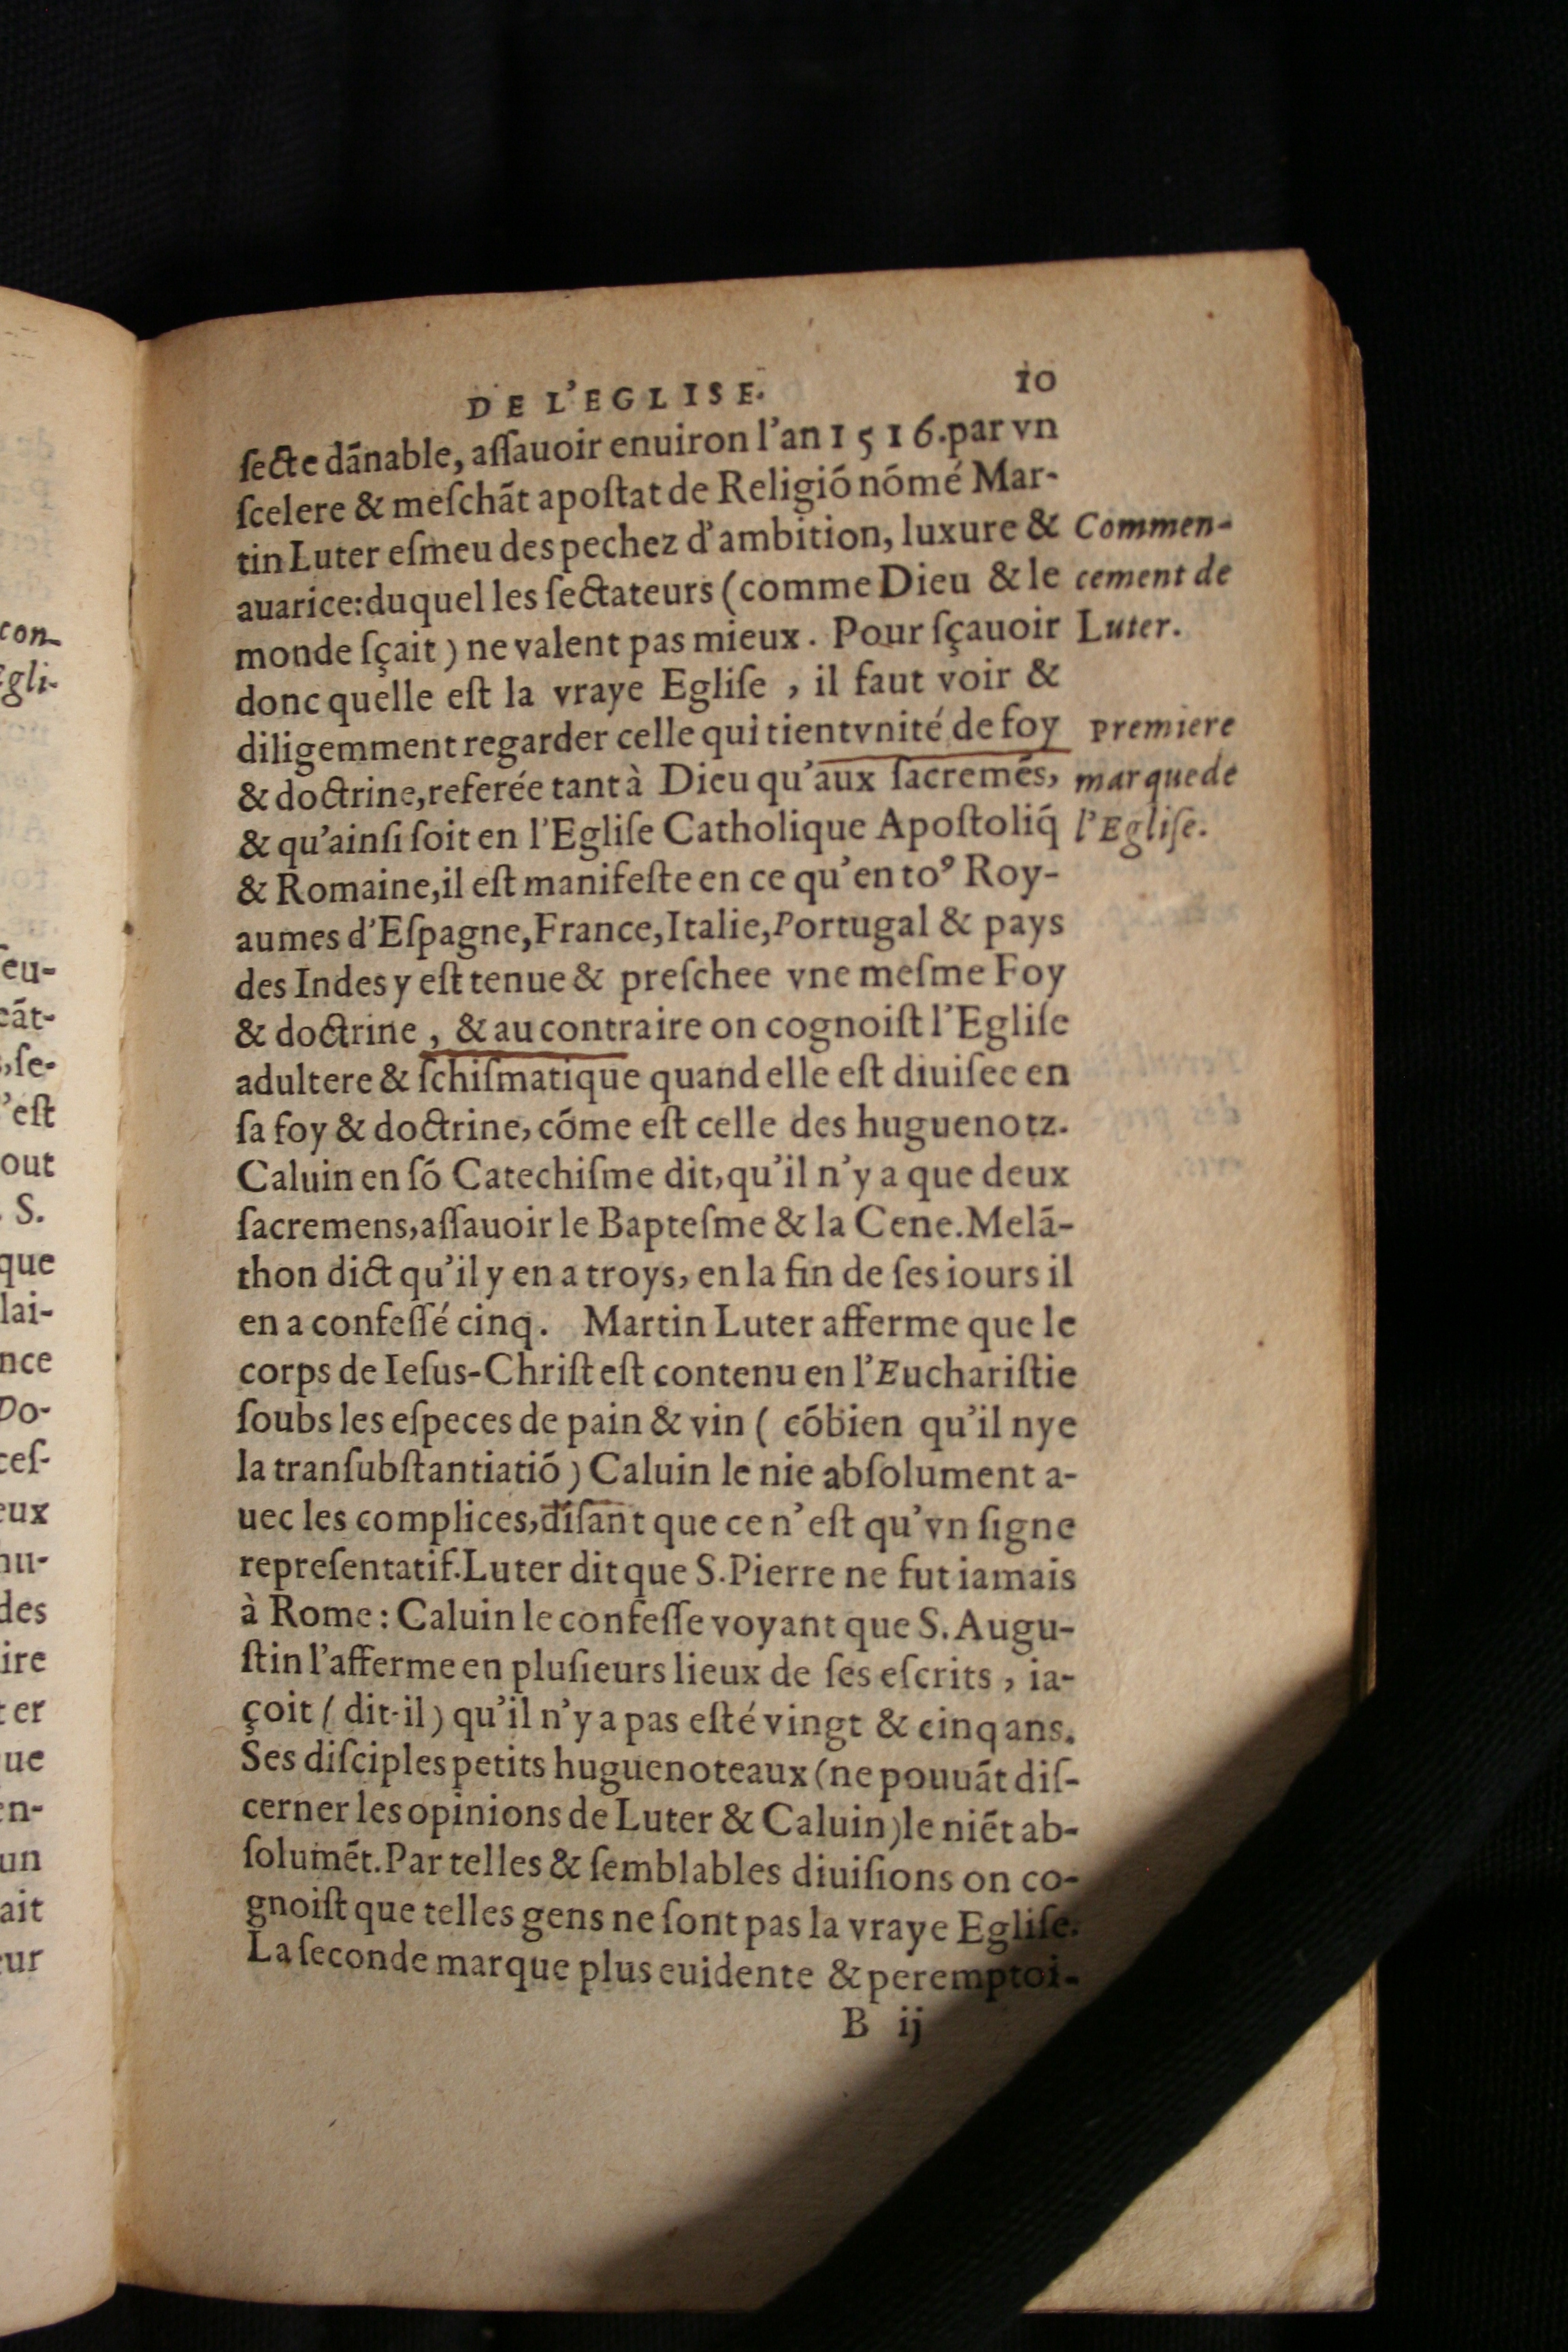 DE L'EGLISE. 10
ſecte dãnable, aſſauoir enuiron l'an 1516. par vn
ſcelere & meſchãt apoſtat de Religiõ nõmé Mar-
tin Luter eſmeu des pechez d'ambition, luxure &
auarice: duquel les ſectateurs (comme Dieu & le
monde ſçait) ne valent pas mieux. Pour ſçauoir
donc quelle eſt la vraye Egliſe, il faut voir &
diligemment regarder celle qui tient vnité de foy
& doctrine, referée tant à Dieu qu'aux ſacremẽs,
& qu'ainſi ſoit en l'Egliſe Catholique Apoſtoliq̃
& Romaine, il eſt manifeſte en ce qu'en toꝰ Roy-
aumes d'Eſpagne, France, Italie, Portugal & pays
des Indes y eſt tenue & preſchee vne meſme Foy
& doctrine, & au contraire on cognoiſt l'Egliſe
adultere & ſchiſmatique quand elle eſt diuiſee en
ſa foy & doctrine, cõme eſt celle des huguenotz.
Caluin en ſõ Catechiſme dit, qu'il n'y a que deux
ſacremens, aſſauoir le Bapteſme & la Cene. Melã-
thon dict qu'il y en a troys, en la fin de ſes iours il
en a confeſſé cinq. Martin Luter afferme que le
corps de Ieſus-Chriſt eſt contenu en l'Euchariſtie
ſoubs les eſpeces de pain & vin ( cõbien qu'il nye
la tranſubſtantiatiõ ) Caluin le nie abſolument a-
uec les complices, diſant que ce n'eſt qu'vn ſigne
repreſentatif. Luter dit que S. Pierre ne fut iamais
à Rome: Caluin le confeſſe voyant que S. Augu-
ſtin l'afferme en pluſieurs lieux de ſes eſcrits, ia-
çoit ( dit-il ) qu'il n'y a pas eſté vingt & cinq ans.
Ses diſciples petits huguenoteaux (ne pouuãt diſ-
cerner les opinions de Luter & Caluin) le niẽt ab-
ſolumẽt. Par telles & ſemblables diuiſions on co-
gnoiſt que telles gens ne ſont pas la vraye Egliſe.
La ſeconde marque plus euidente & peremptoi-
B ij
Commen-
cement de
Luter.
Premiere
marque de
l'Egliſe.
con-
Egli-
ſeu-
cãt-
,ſe-
'eſt
out
. S.
que
lai-
nce
Do-
ceſ-
eux
hu-
des
ire
ter
ue
en-
un
ait
eur